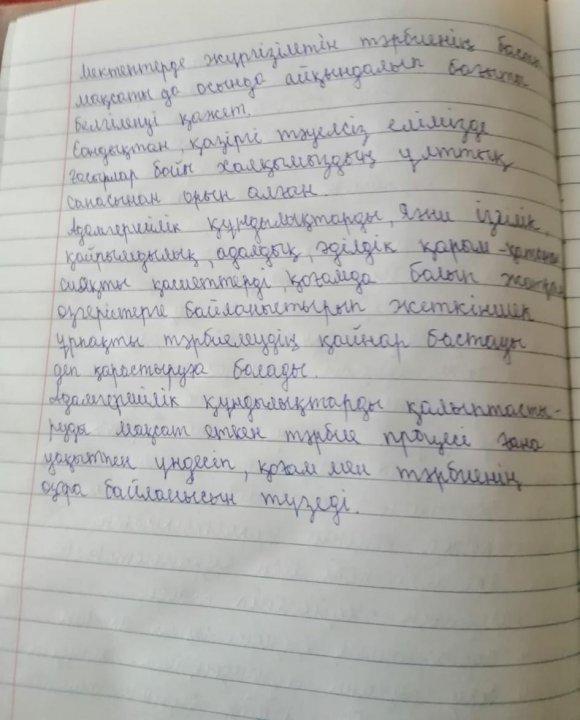 Мектептерде жүргізілетін тәрбиенің басты
мақсаты да осында айқындалып бағыты
белгіленуі қажет.
Сондықтан, қазіргі тәуелсіз елімізде
ғасырлар бойы халқымыздың ұлттық
санасынан орын алған.
Адамгершілік құндылықтарды, яғни ізгілік,
қайырымдылық, адалдық, әділдік қарым-қатынас
сияқты қасиеттерді қоғамда болып жатқан
өзгерістерге байланыстырып жеткіншек
ұрпақты тәрбиелеудің қайнар бастауы
деп қарастыруға болады.
Адамгершілік құндылықтарды қалыптасты-
руды мақсат еткен тәрбие процесі жаңа
уақытпен үндесіп, қоғам мен тәрбиенің
өзара байланысын түзеді.